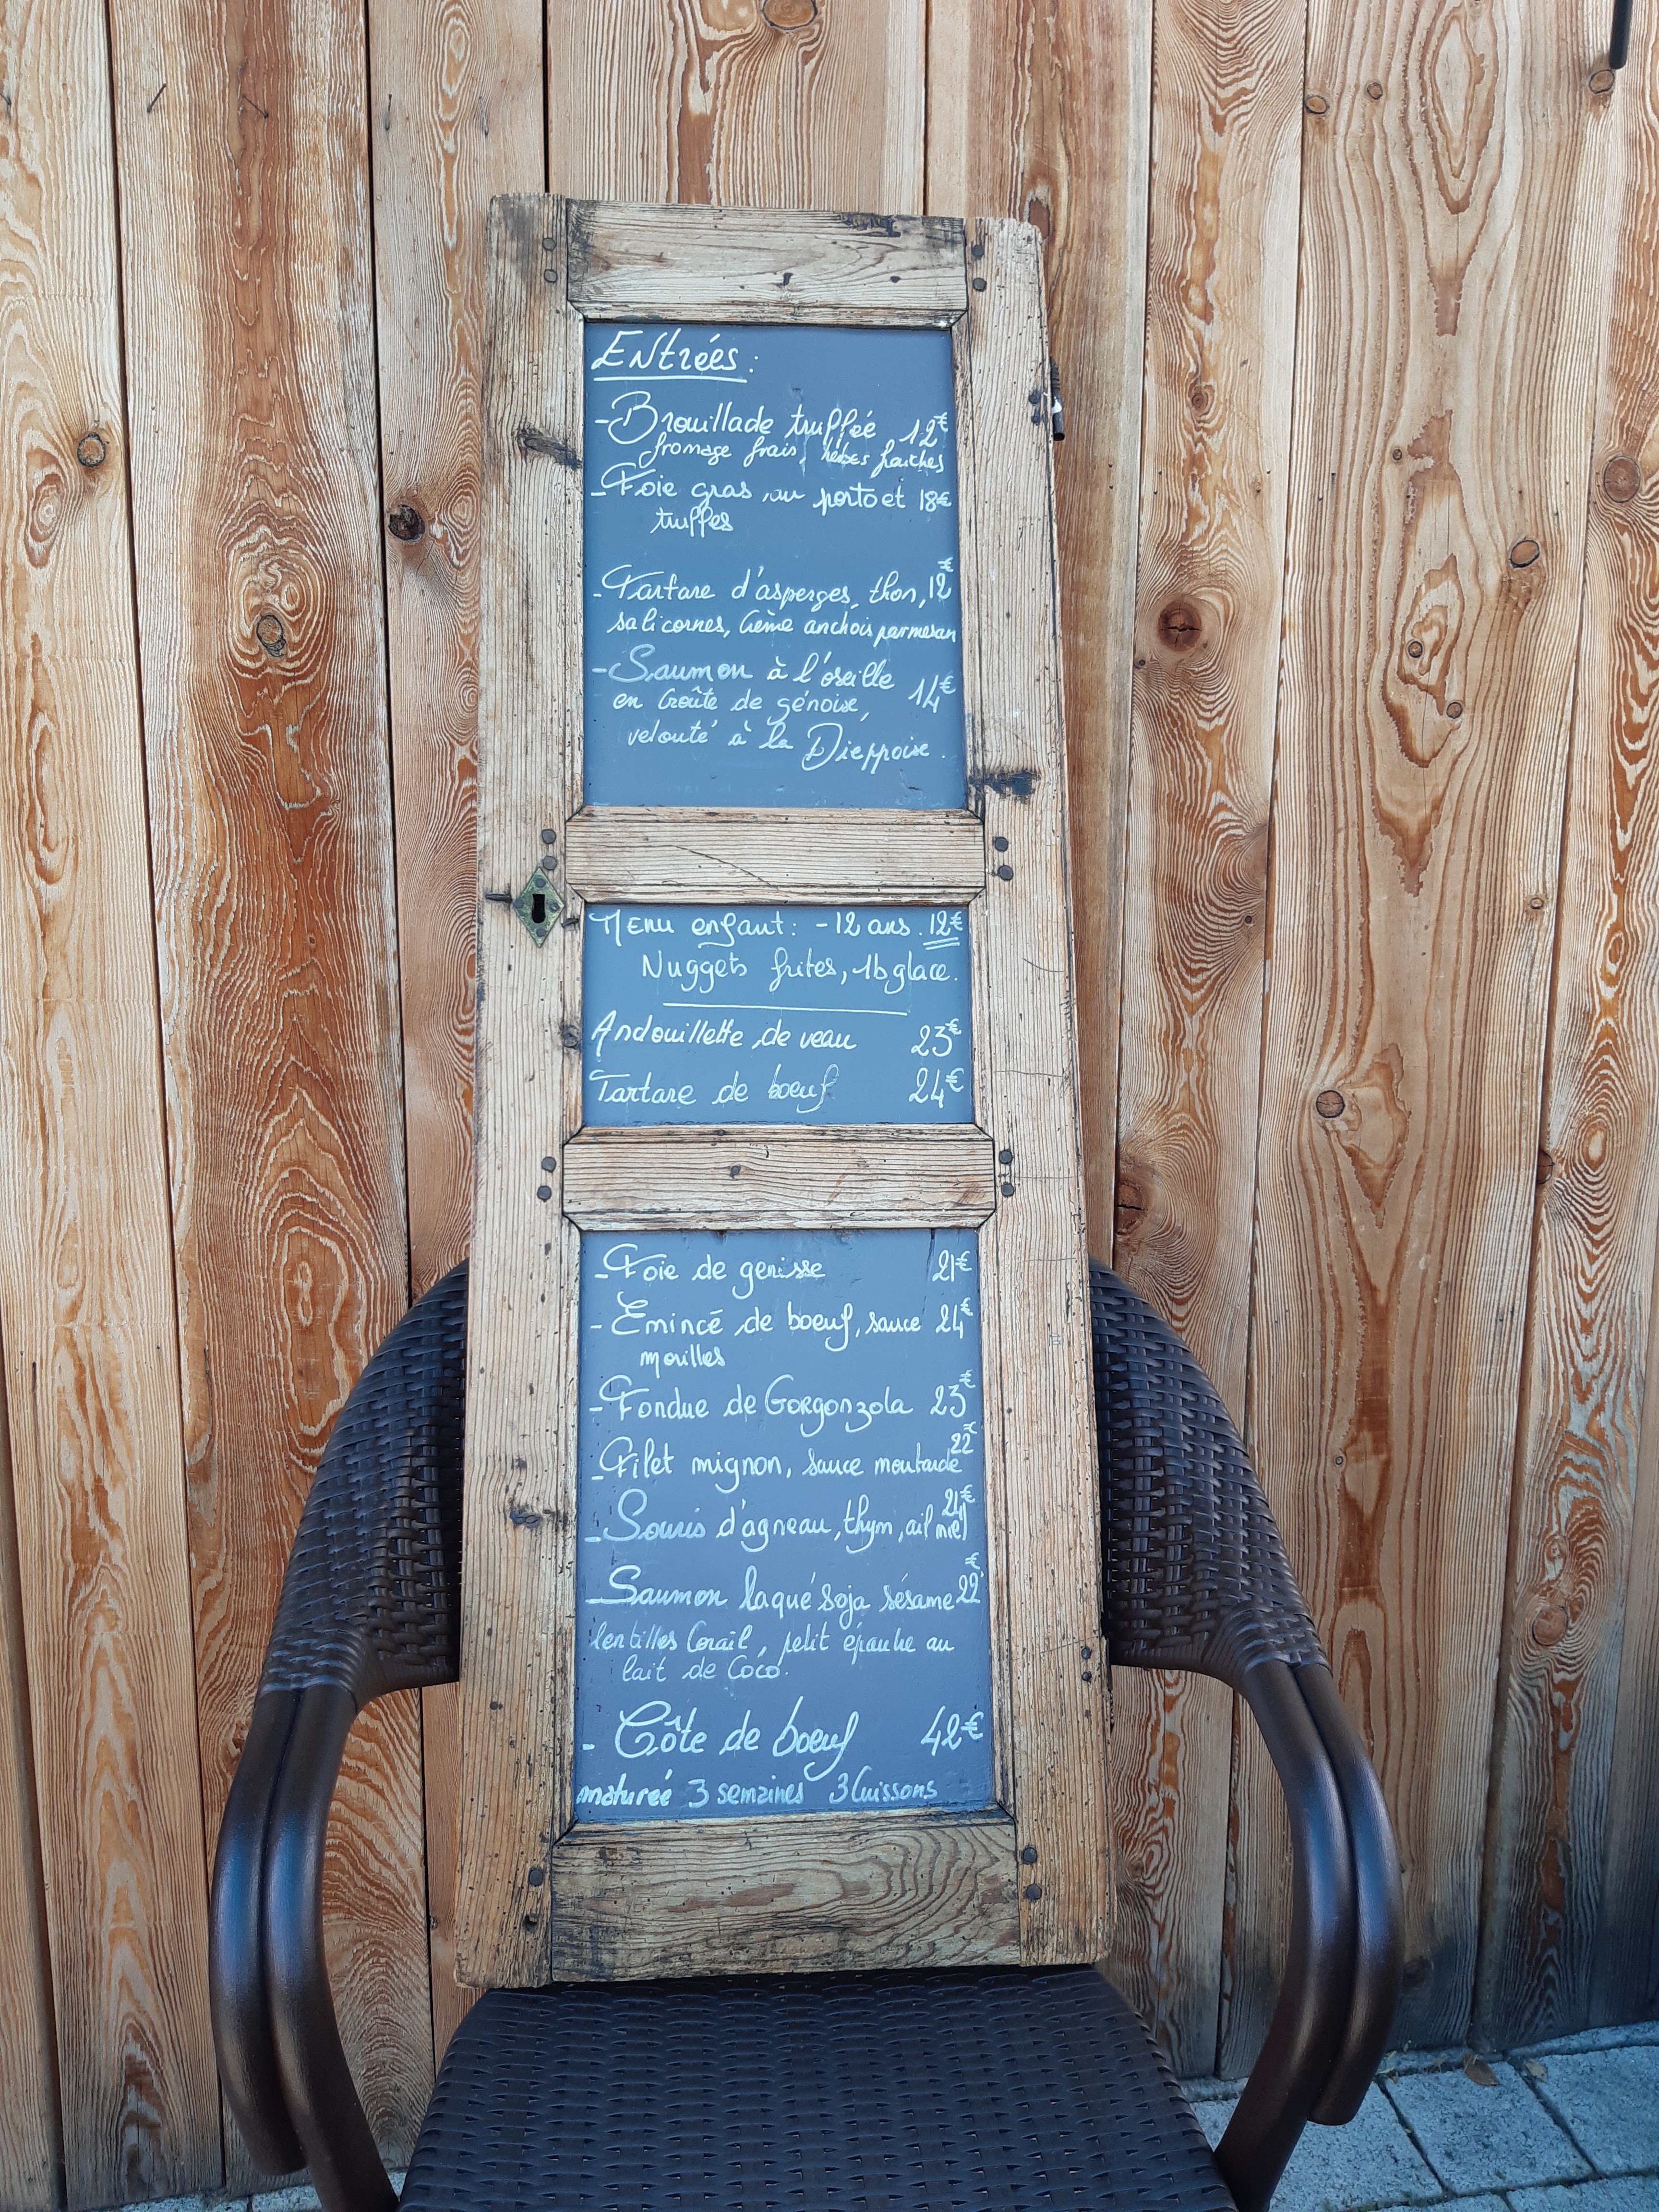 Entrées :
- Brouillade truffée 12€
fromage frais, herbes fraiches
- Foie gras au porto et 18€
truffes
- Tartare d'asperges, thon, 12€
salicornes, Crème anchois parmesan
- Saumon à l'oseille 14€
en Croûte de génoise,
velouté à la Dieppoise.
Menu enfant : - 12 ans. 12€
Nuggets frites, 1b glace.
Andouillette de veau 23€
Tartare de boeuf 24€
- Foie de genisse 21€
- Emincé de boeuf, sauce 24€
morilles
- Fondue de Gorgonzola 23€
- Filet mignon, sauce moutarde 22€
- Souris d'agneau, thym, ail miel €
- Saumon laqué soja sésame 22€
lentilles Corail, petit épautre au
lait de Coco.
- Côte de boeuf 42€
maturée 3 semaines 3 Cuissons